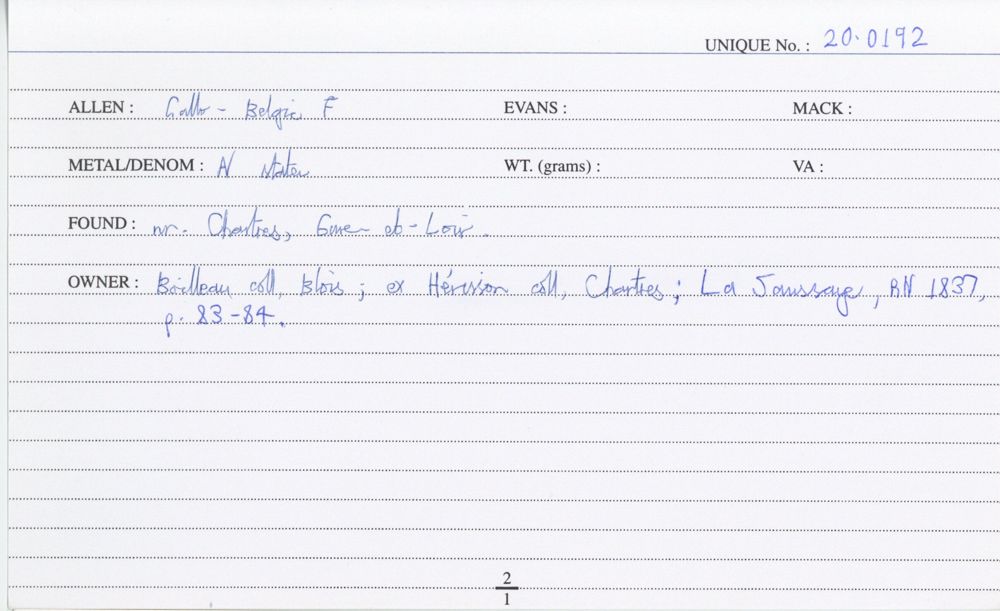 UNIQUE No. : 20.0192
ALLEN : Gallo-Belgic F EVANS : MACK :
METAL/DENOM : AV Stater WT. (grams) : VA :
FOUND : nr. Chartres, Eure-et-Loir.
OWNER : Bailleau coll, Blois ; ex Hérisson coll, Chartres ; La Saussaye, RN 1837,
p. 83-84.
2
1